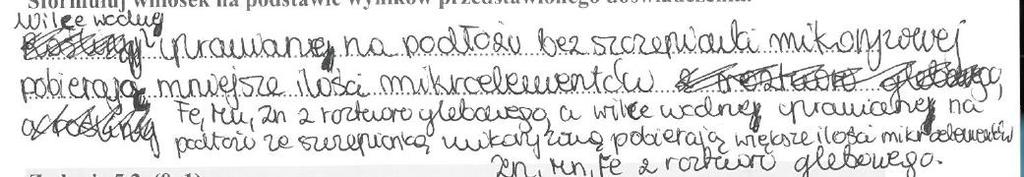 Sformułuj wniosek na podstawie wyników przedstawionego doświadczenia.
Wilce wodnej
uprawianej na podłożu bez szczepionki mikoryzowej
pobierają mniejsze ilości mikroelementów
Fe, Mn, Zn z roztworu glebowego, a wilce wodnej uprawianej na
podłożu ze szczepionką mikoryzową pobierają większe ilości mikroelementów
Zn, Mn, Fe z roztworu glebowego.